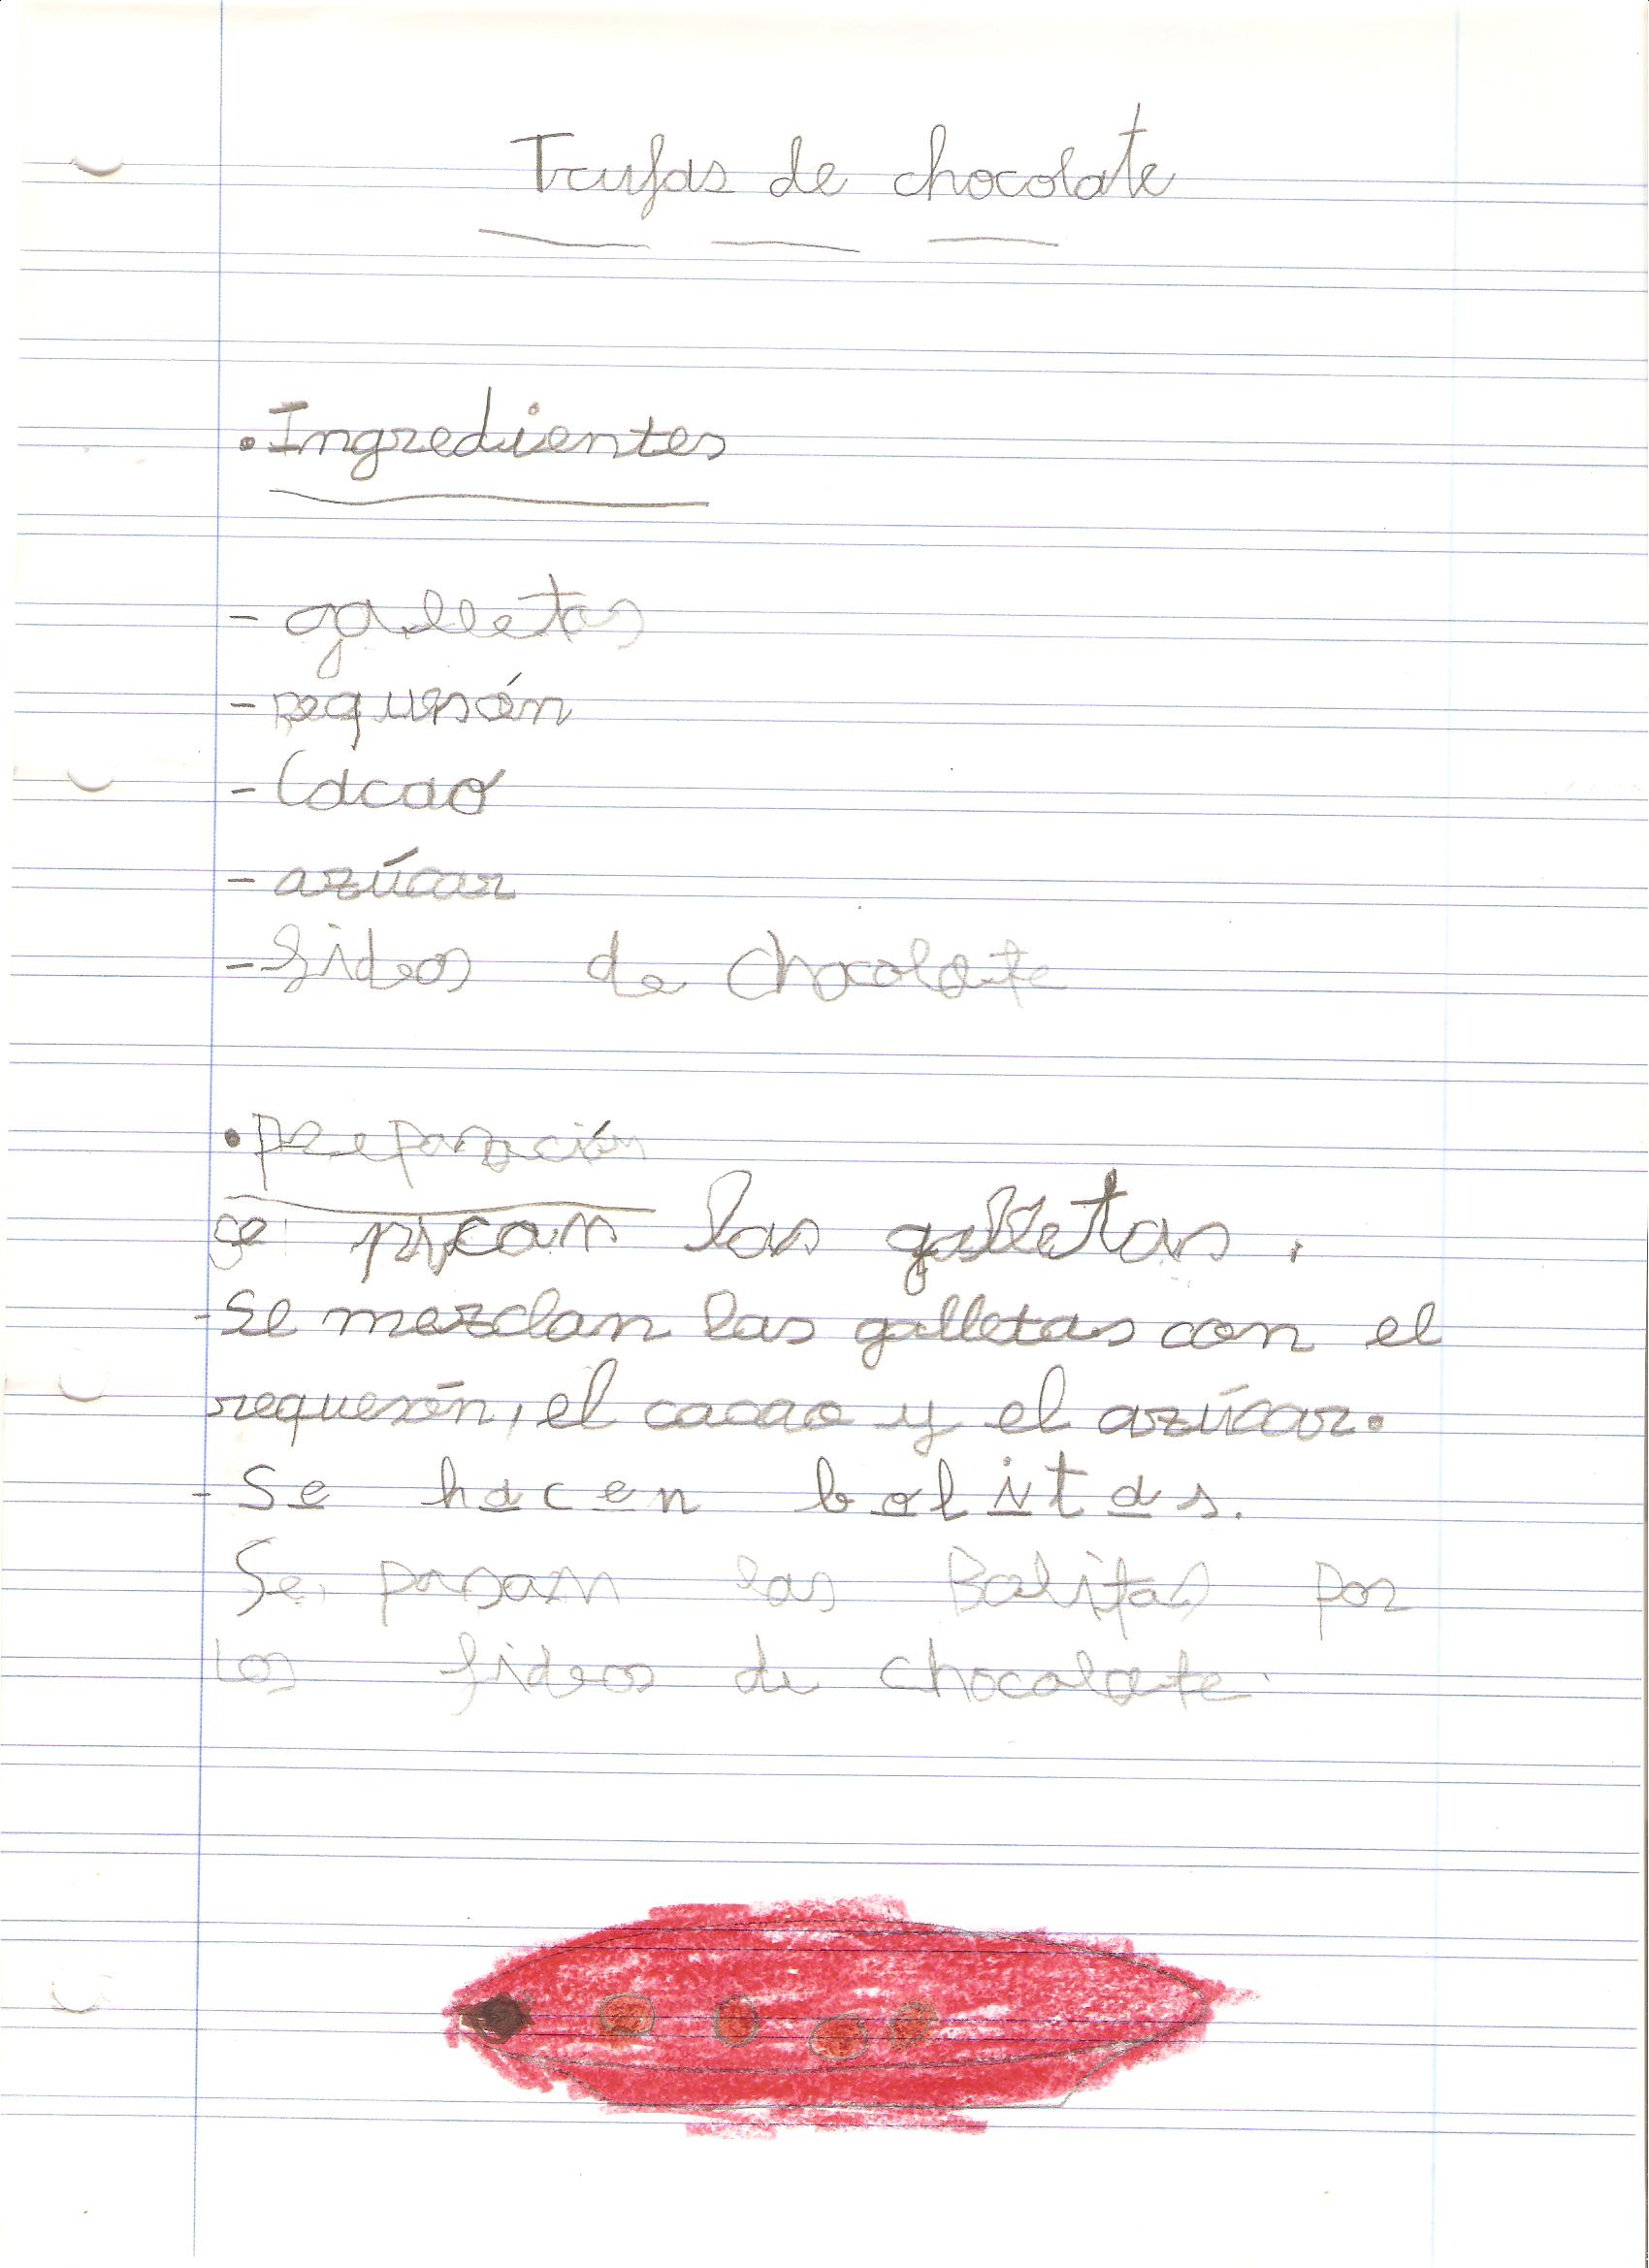 Trufas de chocolate
• Ingredientes
- galletas
- requesón
- Cacao
- azúcar
- fideos de chocolate
• preparación
se pican las galletas.
- Se mezclan las galletas con el
requesón, el cacao y el azúcar.
- Se hacen bolitas.
Se pasan las Bolitas por
Los fideos de chocolate.